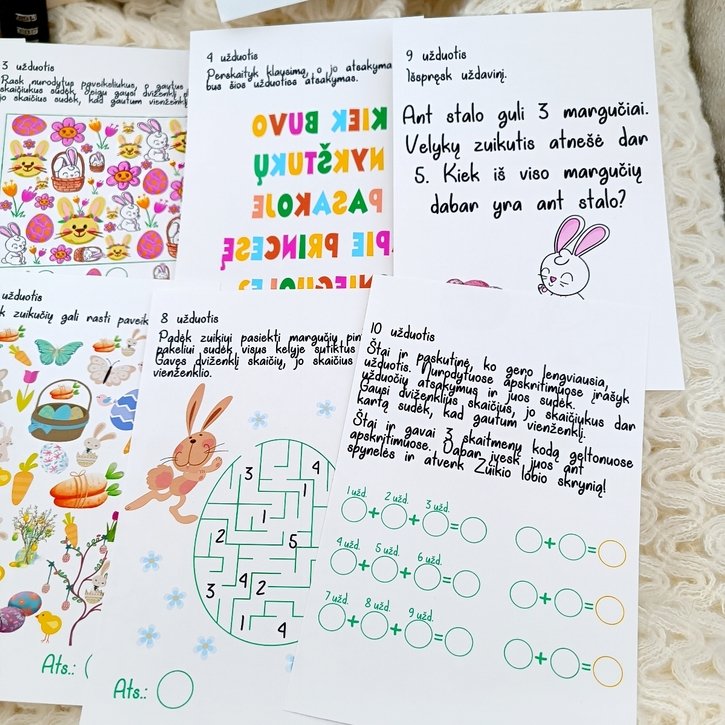 3 užduotis
Rask nurodytus paveikslukus, o gautus
skaičiukus sudėk. Jeigu gavai dviženklį
jo skaičius sudėk, kad gautum vienženklį
4 užduotis
Perskaityk klausimą, o jo atsakyma
bus šios užduoties atsakymas.
KIEK BUVO
NYKŠTUKŲ
PASAKOJE
APIE PRINCESĘ
9 užduotis
Išspręsk uždavinį.
Ant stalo guli 3 margučiai.
Velykų zuikutis atnešė dar
5. Kiek iš viso margučių
dabar yra ant stalo?
užduotis
k zuikučių gali rasti paveik
Ats.:
8 užduotis
Padėk zuikiui pasiekti margučių pin
pakeliui sudėk visus kelyje sutiktus
Gavęs dviženklį skaičių, jo skaičius
vienženklio.
3
4
1
1
2
5
3
4
2
1
4
Ats.:
10 užduotis
Štai ir paskutinė, ko gero lengviausia,
užduotis. Nurodytuose apskritimuose įrašyk
užduočių atsakymus ir juos sudėk.
Gausi dviženklius skaičius, jo skaičiukus dar
kartą sudėk, kad gautum vienženklį.
Štai ir gavai 3 skaitmenų kodą geltonuose
apskritimuose. Dabar įvesk juos ant
spynelės ir atverk Zuikio lobio skrynią!
1 užd. 2 užd. 3 užd.
+ + =
+ =
4 užd. 5 užd. 6 užd.
+ + =
+ =
7 užd. 8 užd. 9 užd.
+ + =
+ =